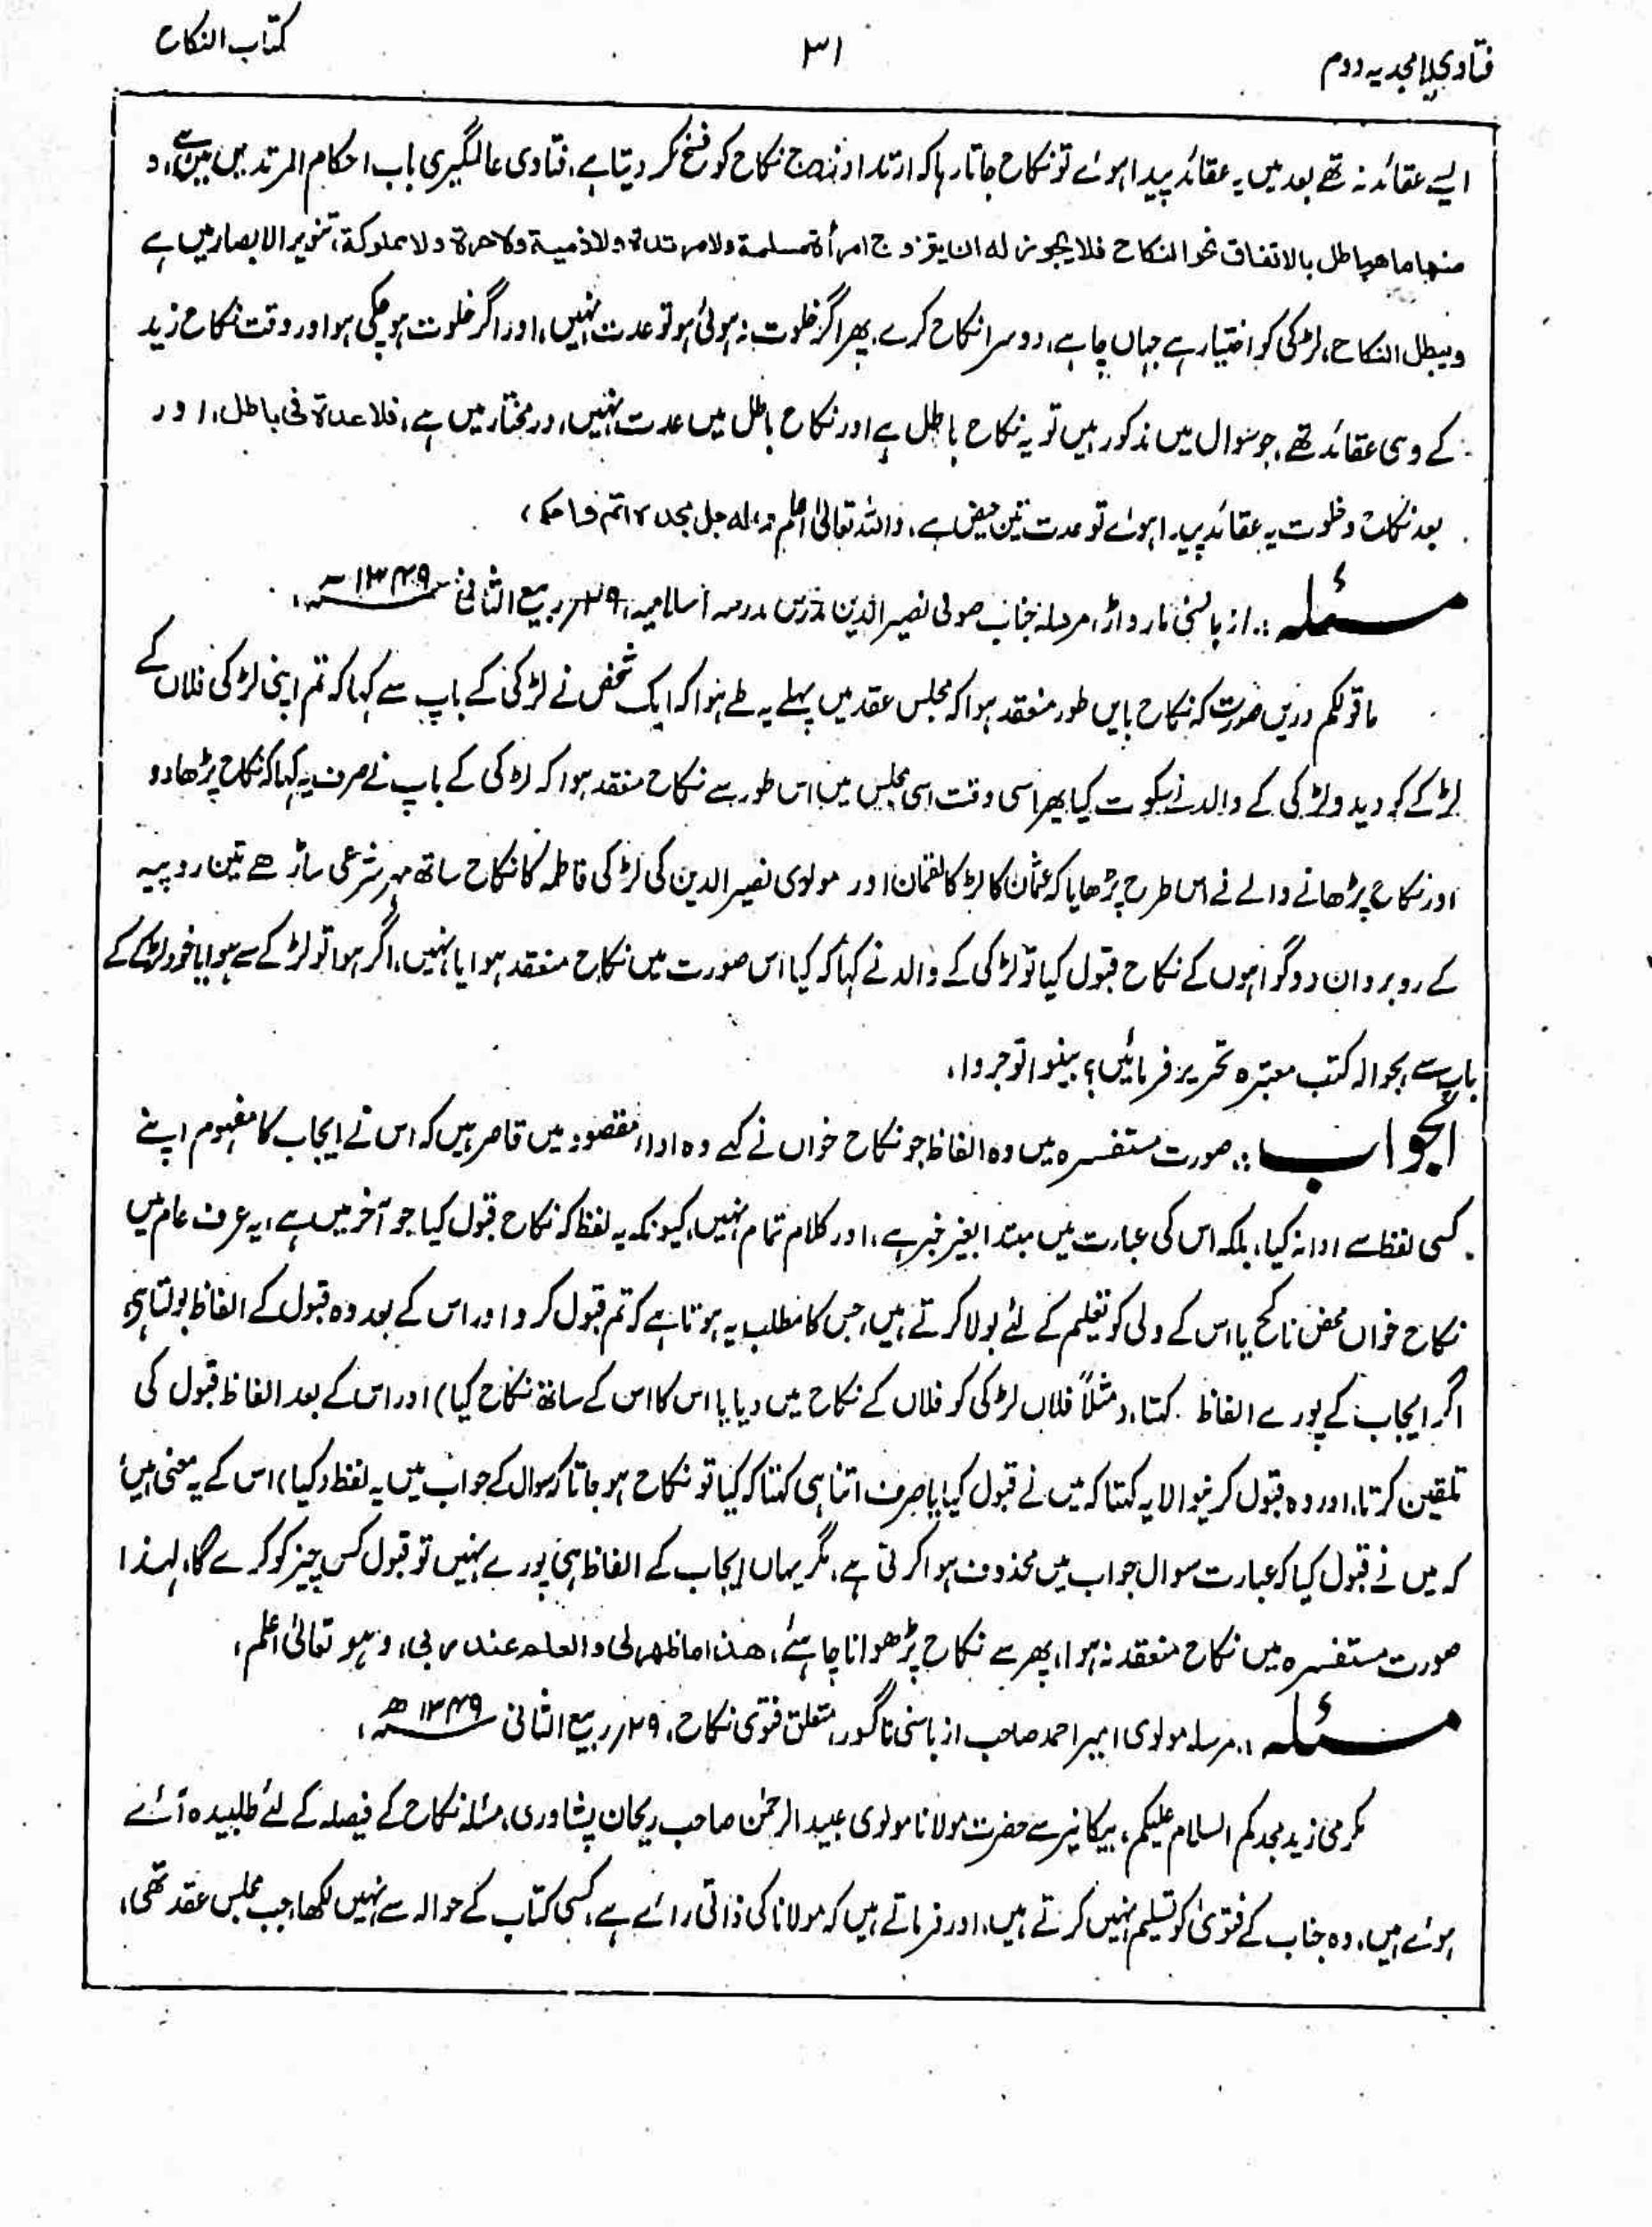 فتاویٰ امجدیہ دوم
۳۱
کتاب النکاح
ایسے عقائد نہ تھے بعد میں یہ عقائد پیدا ہوئے تو نکاح جاتا رہا کہ ارتداد زوج نکاح کو فسخ کر دیتا ہے، فتاوی عالمگیری باب احکام المرتدین میں ہے، و
منہا ما ھو باطل بالاتفاق نحو النکاح فلا یجوز لہ ان یتزوج امرأۃ مسلمۃ ولا مرتدۃ ولا ذمیۃ ولا حرۃ ولا مملوکۃ، تنویر الابصار میں ہے
ویبطل النکاح، لڑکی کو اختیار ہے جہاں چاہے، دوسرا نکاح کرے، پھر اگر خلوت نہ ہوئی ہو تو عدت نہیں، اور اگر خلوت ہو چکی ہو اور وقت نکاح زید
کے وہی عقائد تھے، جو سوال میں مذکور ہیں تو یہ نکاح باطل ہے اور نکاح باطل میں عدت نہیں، در مختار میں ہے، فلا عدۃ فی باطل، اور
بعد نکاح و خلوت یہ عقائد پیدا ہوئے تو عدت تین حیض ہے، واللہ تعالیٰ اعلم وعلمہ جل مجدہ اتم واحکم،
مسئلہ :۔ از باسنی مارواڑ، مرسلہ جناب صوفی نصیر الدین مدرس مدرسہ اسلامیہ، ۲۹؍ ربیع الثانی ۱۳۴۹ھ،
ما قولکم دریں صورت کہ نکاح بایں طور منعقد ہوا کہ مجلس عقد میں پہلے یہ طے ہوا کہ ایک شخص نے لڑکی کے باپ سے کہا کہ تم اپنی لڑکی فلاں کے
لڑکے کو دیدو لڑکی کے والد نے سکوت کیا پھر اسی وقت اسی مجلس میں اس طور سے نکاح منعقد ہوا کہ لڑکی کے باپ نے صرف یہ کہا کہ نکاح پڑھا دو
اور نکاح پڑھانے والے نے اس طرح پڑھایا کہ عثمان کا لڑکا لقمان اور مولوی نصیر الدین کی لڑکی فاطمہ کا نکاح ساتھ مہر شرعی ساڑھے تین روپیہ
کے روبرو ان دو گواہوں کے نکاح قبول کیا تو لڑکی کے والد نے کہا کہ کیا اس صورت میں نکاح منعقد ہوا یا نہیں، اگر ہوا تو لڑکے سے ہوا یا خود لڑکے کے
باپ سے بحوالہ کتب معتبرہ تحریر فرمائیں؟ بینوا توجروا،
الجواب :۔ صورت مستفسرہ میں وہ الفاظ جو نکاح خواں نے کہے وہ اداء مقصود میں قاصر ہیں کہ اس نے ایجاب کا مفہوم اپنے
کسی لفظ سے ادا نہ کیا، بلکہ اس کی عبارت میں مبتدا بغیر خبر ہے، اور کلام تمام نہیں، کیونکہ یہ لفظ کہ نکاح قبول کیا جو آخر میں ہے، یہ عرف عام میں
نکاح خواں محض ناکح یا اس کے ولی کو تعلیم کے لئے بولا کرتے ہیں، جس کا مطلب یہ ہوتا ہے کہ تم قبول کرو اور اس کے بعد وہ قبول کے الفاظ بولتا ہے
اگر ایجاب کے پورے الفاظ کہتا، (مثلاً فلاں لڑکی کو فلاں کے نکاح میں دیا یا اس کا اس کے ساتھ نکاح کیا) اور اس کے بعد الفاظ قبول کی
تلقین کرتا، اور وہ قبول کرنیوالا یہ کہتا کہ میں نے قبول کیا یا صرف اتنا ہی کہتا کہ کیا تو نکاح ہو جاتا کہ سوال کے جواب میں یہ لفظ (کیا) اس کے یہ معنی ہیں
کہ میں نے قبول کیا کہ عبارت سوال جواب میں محذوف ہوا کرتی ہے، مگر یہاں ایجاب کے الفاظ ہی پورے نہیں تو قبول کس چیز کو کرے گا، لہٰذا
صورت مستفسرہ میں نکاح منعقد نہ ہوا، پھر سے نکاح پڑھوانا چاہئے، ھذا ما ظھر لی والعلم عند ربی، وہو تعالیٰ اعلم،
مسئلہ :۔ مرسلہ مولوی امیر احمد صاحب از باسنی ناگور، متعلق فتوی نکاح، ۲۹؍ ربیع الثانی ۱۳۴۹ھ،
مکرمی زید مجدکم السلام علیکم، بیکانیر سے حضرت مولانا مولوی عبید الرحمٰن صاحب ریحان پشاوری، مسئلہ نکاح کے فیصلہ کے لئے طلبیدہ آئے
ہوئے ہیں، وہ جناب کے فتویٰ کو تسلیم نہیں کرتے ہیں، اور فرماتے ہیں کہ مولانا کی ذاتی رائے ہے، کسی کتاب کے حوالہ سے نہیں لکھا، جب مجلس عقد تھی،